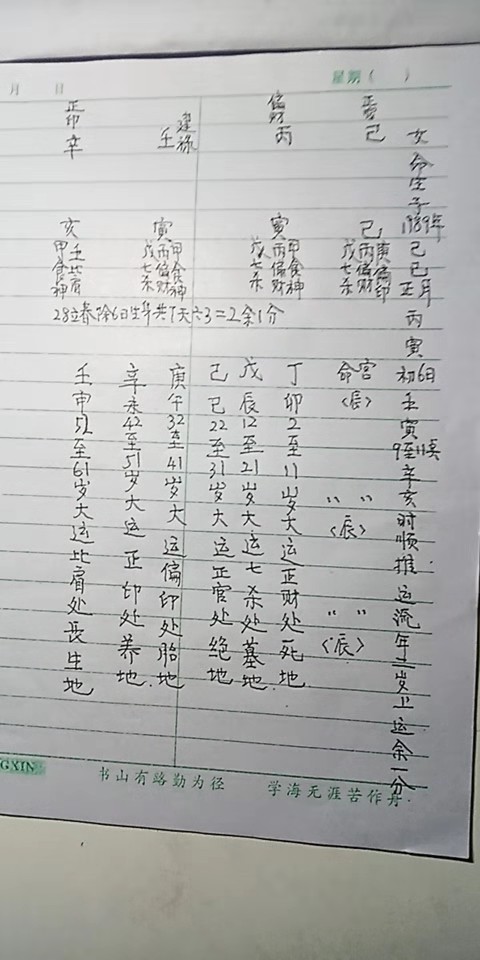 月 日 星期( )
女命生于1989年己巳正月丙寅初6日壬寅9至11点辛亥时顺推运流年二岁上运余一分
正官 己
偏财 丙
建禄 壬
正印 辛
巳 庚偏印 丙偏财 戊七杀
寅 甲食神 丙偏财 戊七杀
寅 甲食神 丙偏财 戊七杀
亥 壬比肩 甲食神
28立春除6日生年共7天六3=2余1分
命宫〈辰〉 〃 〃〈辰〉 〃 〃〈辰〉
丁卯2至11岁大运正财处死地.
戊辰12至21岁大运七杀处墓地.
己巳22至31岁大运正官处绝地
庚午32至41岁大运偏印处胎地
辛未42至51岁大运正印处养地.
壬申52至61岁大运比肩处长生地
GXIN 书山有路勤为径 学海无涯苦作舟